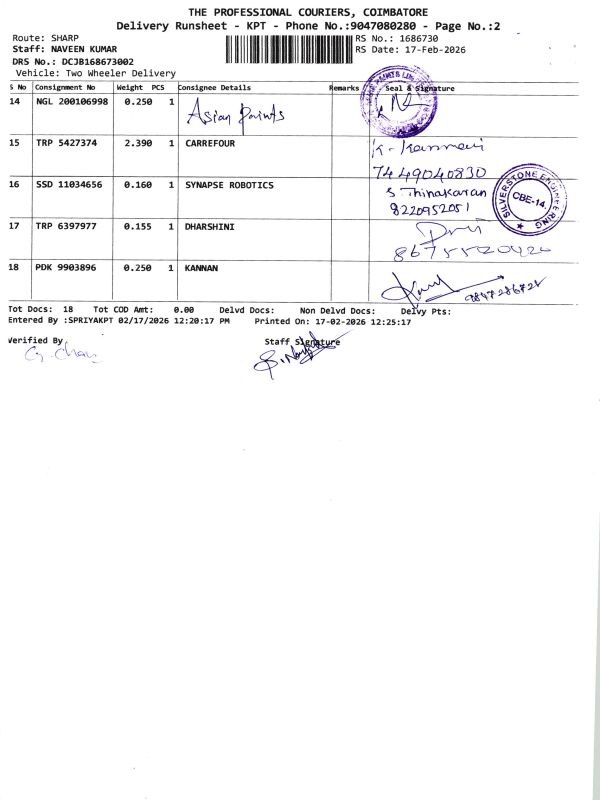 THE PROFESSIONAL COURIERS, COIMBATORE
Delivery Runsheet - KPT - Phone No.:9047080280 - Page No.:2
Route: SHARP
RS No.: 1686730
Staff: NAVEEN KUMAR
RS Date: 17-Feb-2026
DRS No.: DCJB168673002
Vehicle: Two Wheeler Delivery
S No Consignment No Weight PCS Consignee Details Remarks Seal & Signature
14 NGL 200106998 0.250 1 Asian Paints
15 TRP 5427374 2.390 1 CARREFOUR K. Kannavi
7449040830
16 SSD 11034656 0.160 1 SYNAPSE ROBOTICS S Thinakaran
8220952051
SILVERSTONE ENGINEERING
CBE-14.
17 TRP 6397977 0.155 1 DHARSHINI
18 PDK 9903896 0.250 1 KANNAN
Tot Docs: 18 Tot COD Amt: 0.00 Delvd Docs: Non Delvd Docs: Delvy Pts:
Entered By :SPRIYAKPT 02/17/2026 12:20:17 PM Printed On: 17-02-2026 12:25:17
Verified By
Staff Signature